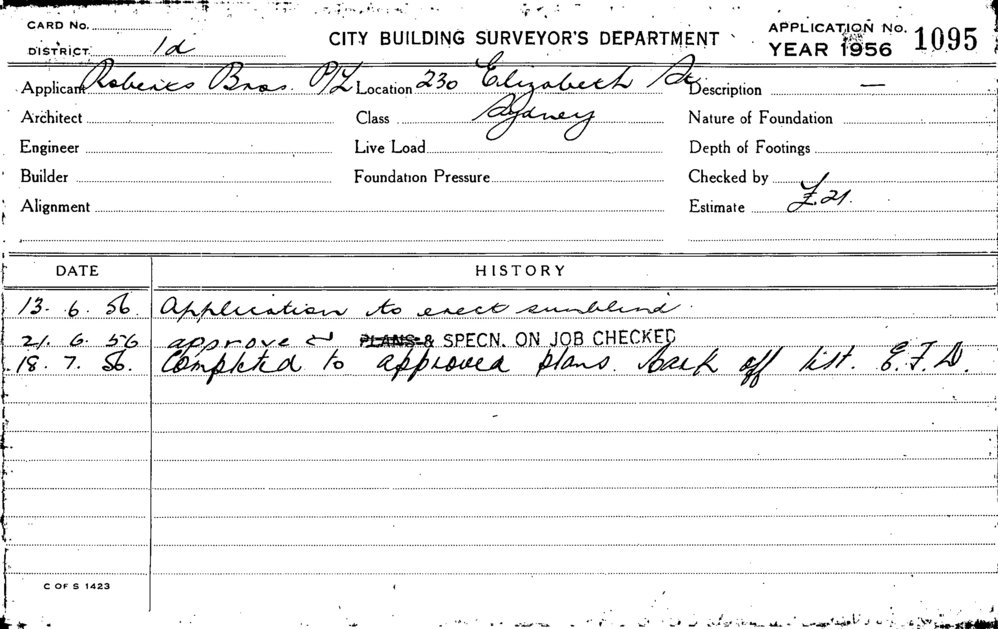 CARD No.
DISTRICT 1d
CITY BUILDING SURVEYOR'S DEPARTMENT
APPLICATION No. 1095
YEAR 1956
Applicant Roberts Bros. P/L Location 230 Elizabeth St Description —
Architect Class Sydney Nature of Foundation
Engineer Live Load Depth of Footings
Builder Foundation Pressure Checked by
Alignment Estimate £21.
DATE HISTORY
13. 6. 56 Application to erect sunblind.
21. 6. 56 approve PLANS & SPECN. ON JOB CHECKED
18. 7. 56. Completed to approved plans. off list. E.F.D.
C OF S 1423